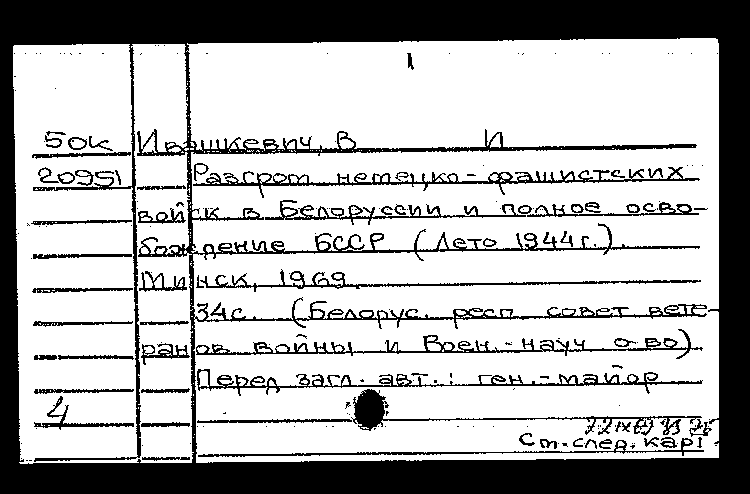 1
50к Ивашкевич, В И
20951 Разгром немецко-фашистских
войск в Белоруссии и полное осво-
бождение БССР (Лето 1944г.).
Минск, 1969.
34с. (Белорус. респ. совет вете-
ранов войны и Воен.-науч о-во)
Перед загл. авт.: ген.-майор
4
См.след.карт.